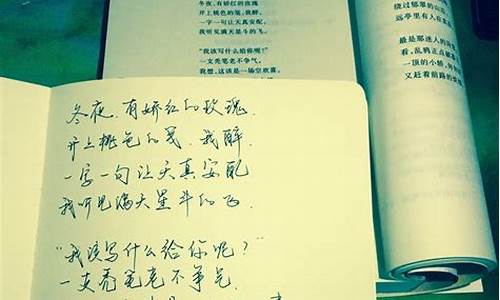 冬夜，有娇红的玫瑰
开上桃色的笺，我醉，
一字一句让天真安配，
我听见满天星斗的飞。
"我该写什么给你呢？"
一支秃笔老不争气。
我想，这该是一场空欢喜，
绕过郁翠的山
远亭里有人在
最是那迷人的
看，乱鸦正点破
一顶的小轿，
又赶着前路的
冬夜，有娇红的玫瑰，
开上桃色的笺，我醉，
一字一句让天真安配
我听见满天星斗的飞.
"我该写什么给你呢？"
一支秃笔老不争气.